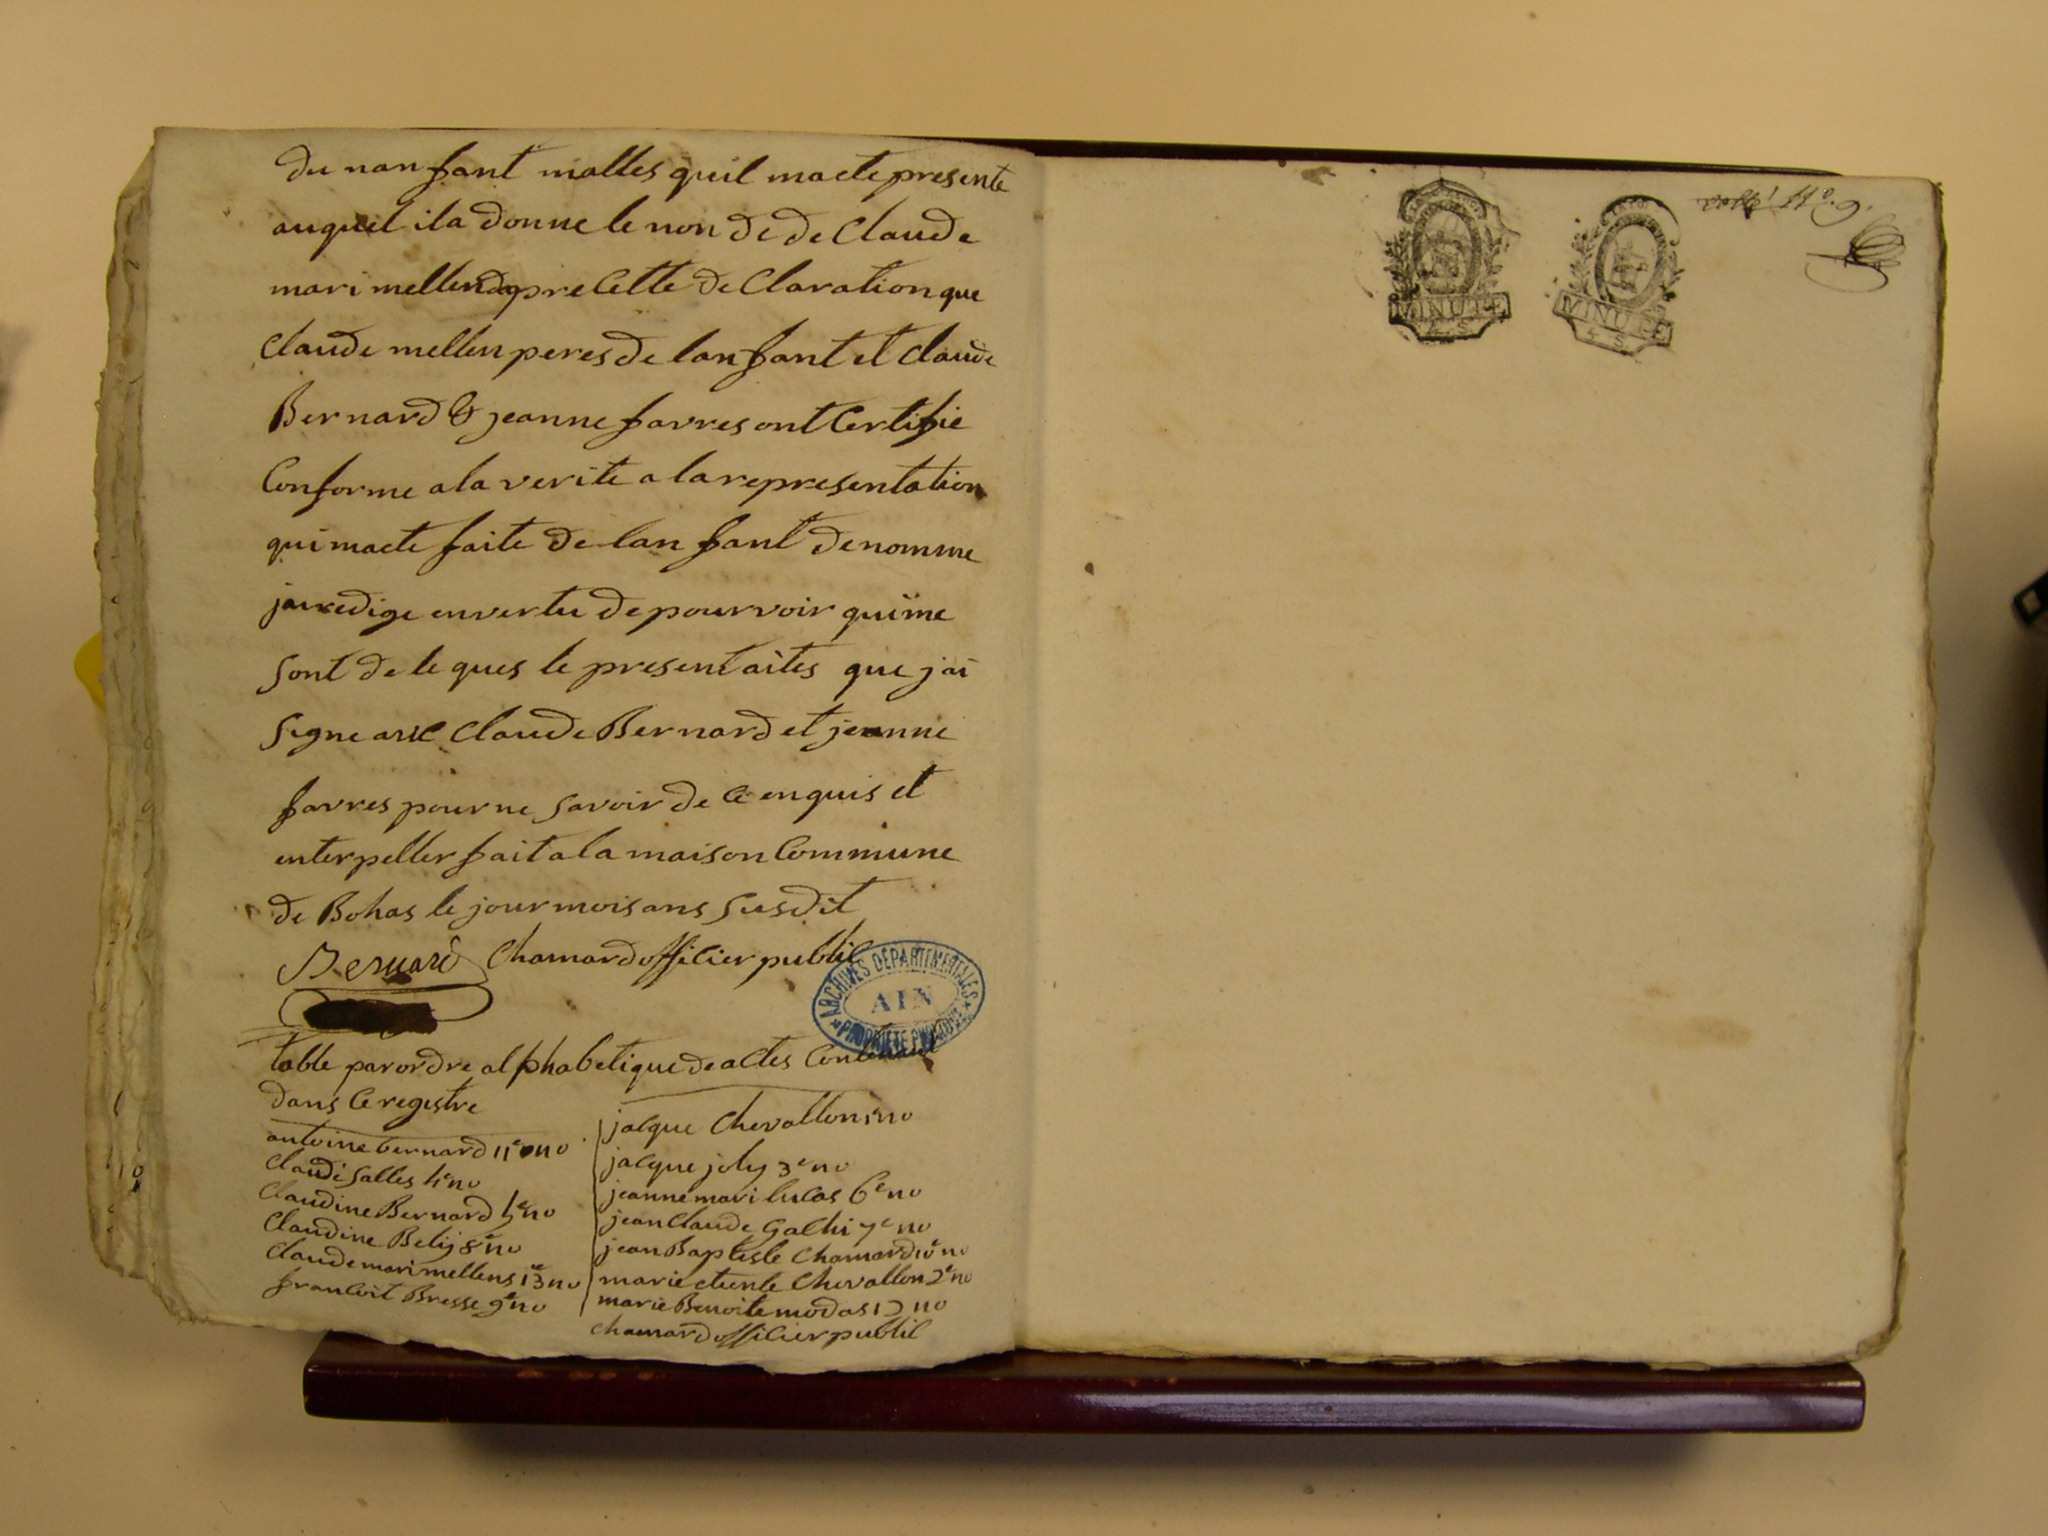 du nan fant malles quil macte presente
auquel ila donne le non de de Claude
mari mellen dapre Cette de Claration que
Claude mellen peres de lan fant et Claude
Bernard & jeanne favres ont Certifie
Conforme a la verite a la representation
qui macte faite de lan fant denomme
jai redige en vertu de pourvoir qui me
sont de le ques le present aites que jai
signe avec Claude Bernard et jeanne
favres pour ne savoir de Ce enquis et
enterpeller fait a la maison Commune
de Bohas le jour mois ans susdit
Bernard Chamard officier public
ARCHIVES DEPARTEMENTALES
AIN
PROPRIETE PUBLIQUE
table par ordre alphabetique de actes Contenant
dans Ce registre
antoine bernard 11e no
Claude Salles 4e no
Claudine Bernard 5e no
Claudine Bely 8e no
Claude mari mellens 13e no
francoit Bresse 9e no
jacque Chevallon 1e no
jacque joly 3e no
jeanne mari lucas 6e no
jean Claude Gachi 7e no
jean Baptiste Chamard 10e no
marie etiente Chevallon 2e no
marie Benoite modas 12 no
chamard officier public
No. 9.
MINUTE
4. S.
MINUTE
4. S.